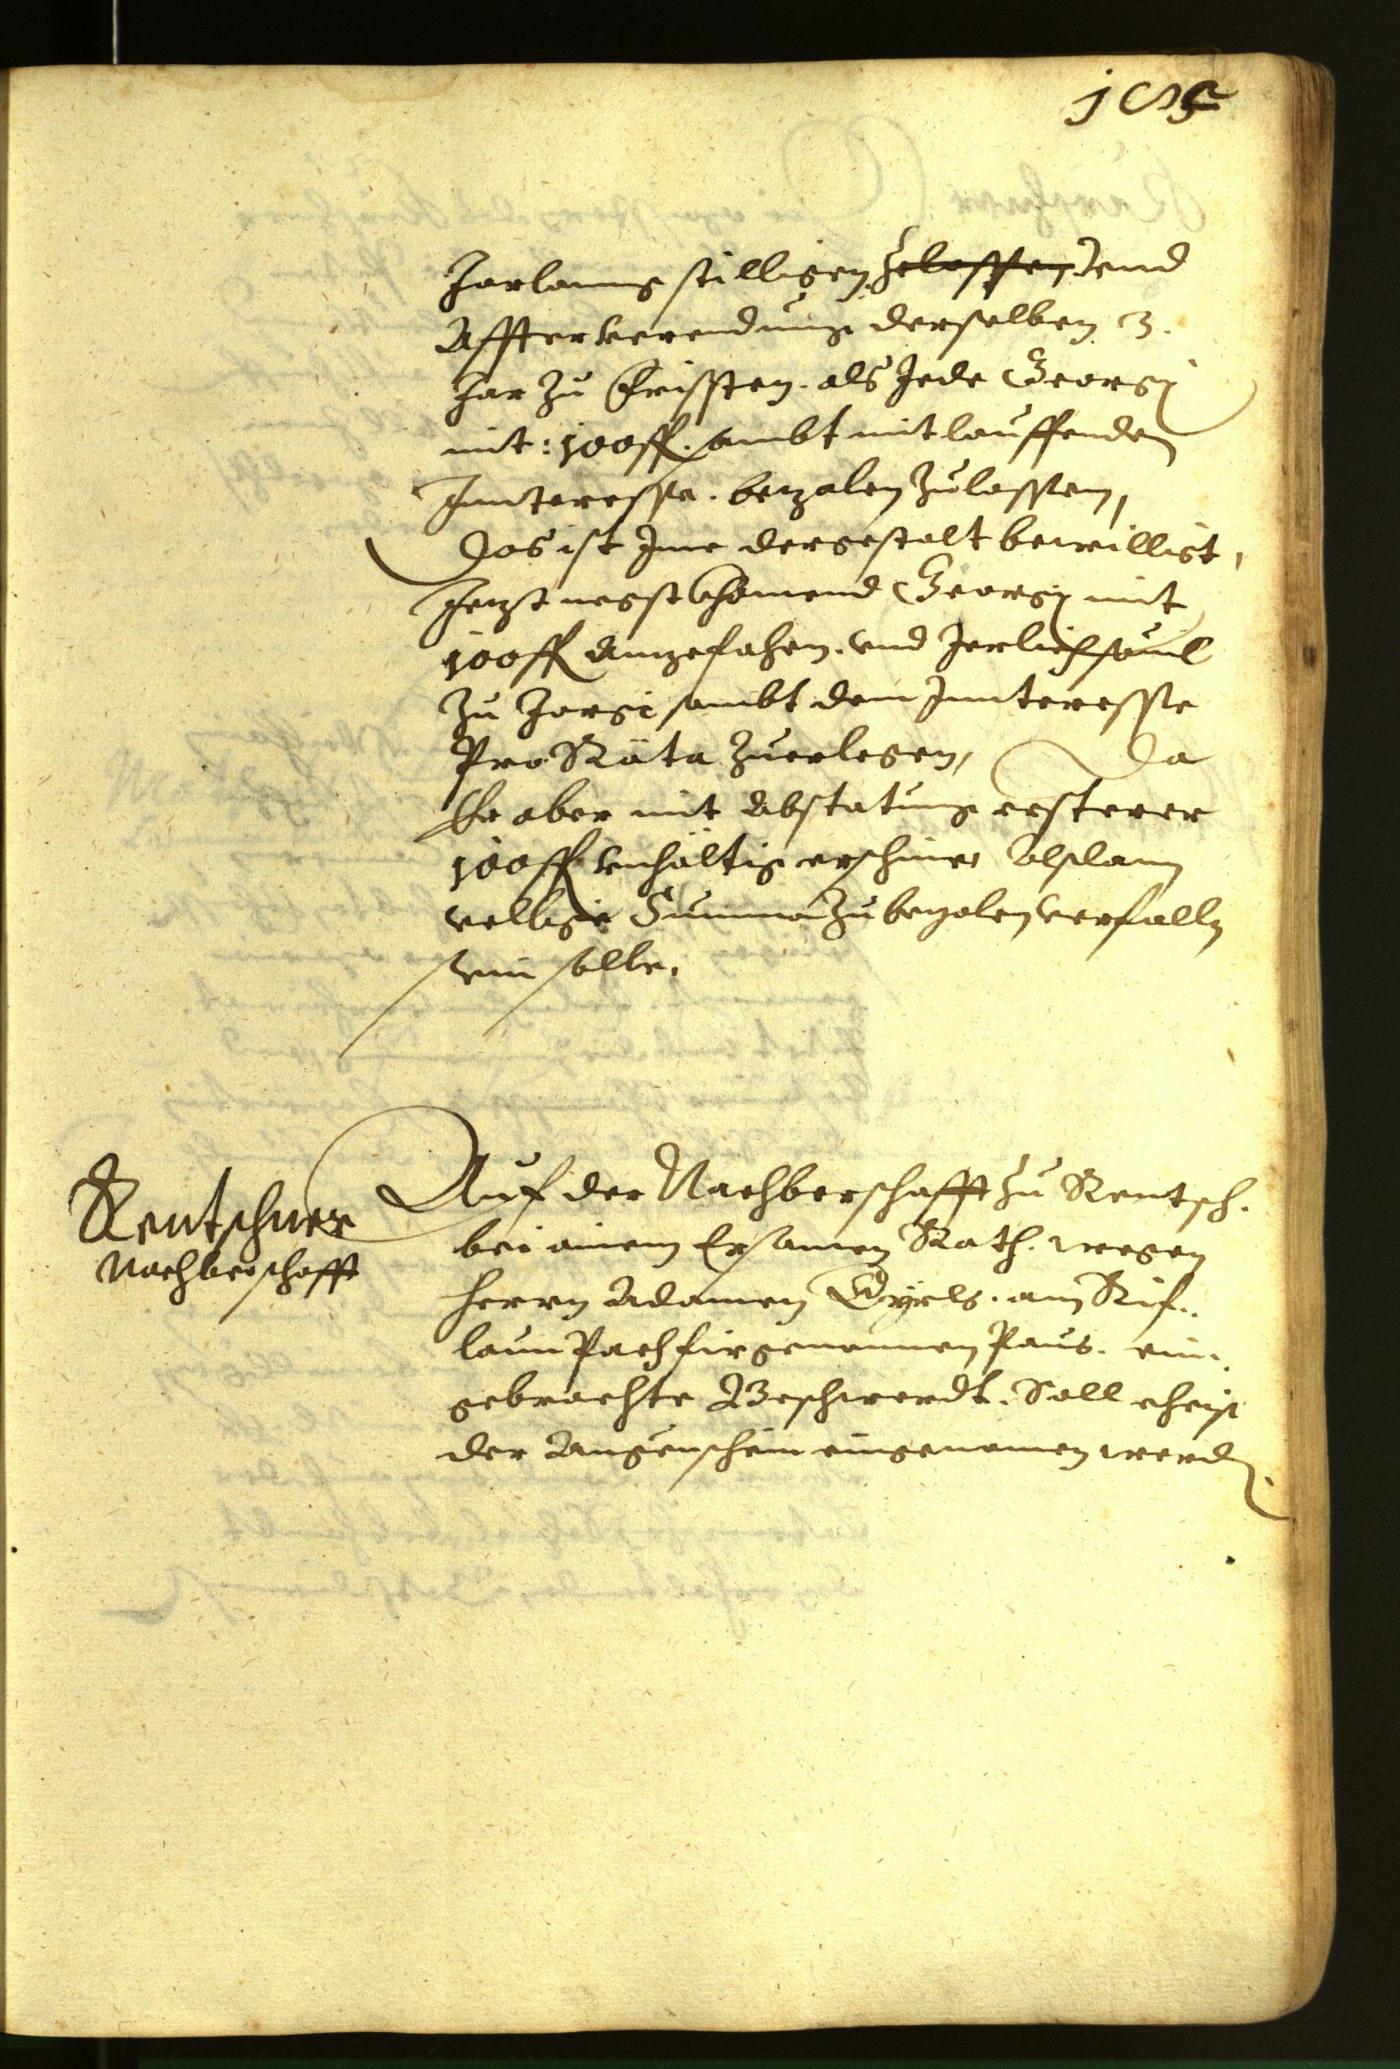 Jarlanng stilligen zelassen, vnd
Affter verendung derselben 3.
Jar zu Frissten. als Jede Georgi
mit: 100 fl. sambt mitlauffenden
Innteresse. bezalen zulassen,
Das ist Jme dergestalt bewilligt,
Jetzt negst khomend Georgi mit
100 fl anzefahen. vnd Jerlich
zu Jorgi sambt dem Innteresse
Pro Räta zuerlegen, Da
Er aber mit Abstatung ersterer
100 fl vnhältig erschine, alsdann
vellige Summa zu bezalen verfalln
sein solle.
Rentschner
Nachberschafft
Auf der Nachberschafft zu Rentsch.
bei ainem Ersamen Rath. wegen
Herrn Adamen Eyrls. am Rif-
laun Pach firgenomnen Paus. ein-
gebrachte Beschwerdt. Soll eheist
der Augenschein eingenomen werdn